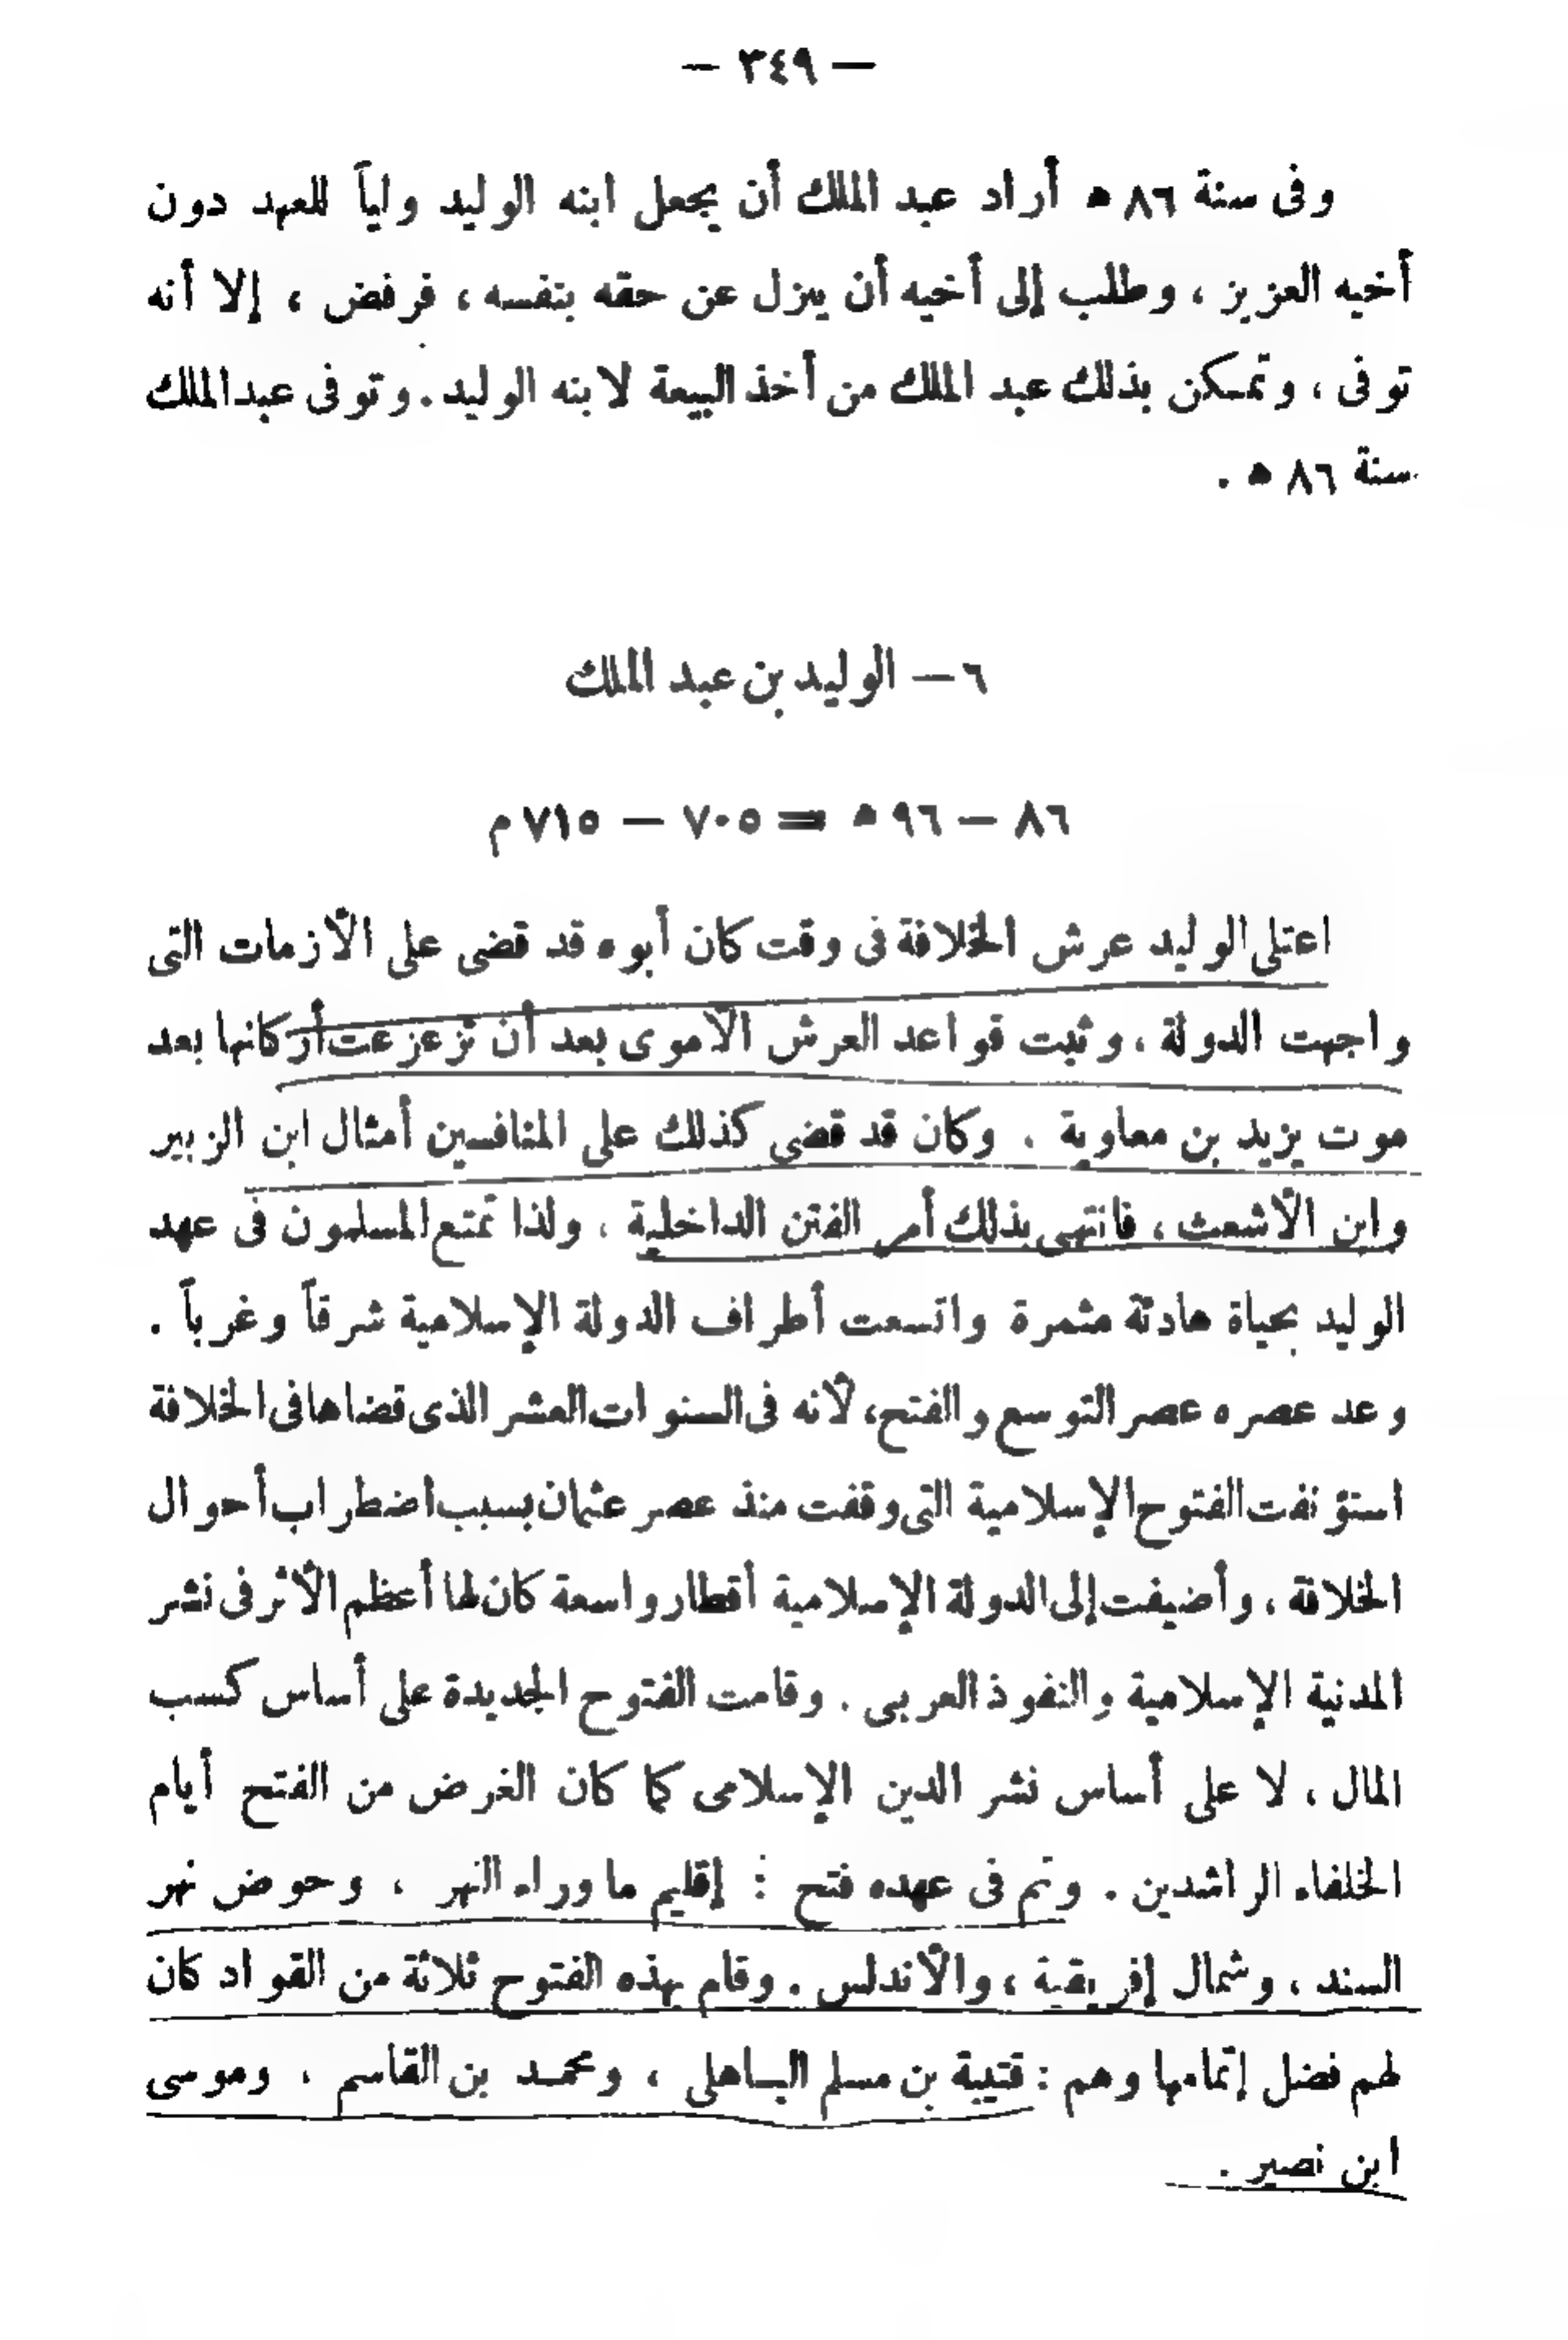 — ٣٤٩ —
وفى سنة ٨٦ ه أراد عبد الملك أن يجعل ابنه الوليد ولياً للعهد دون
أخيه العزيز ، وطلب إلى أخيه أن ينزل عن حقه بنفسه ، فرفض ، إلا أنه
توفى ، وتمكن بذلك عبد الملك من أخذ البيعة لابنه الوليد . وتوفى عبد الملك
سنة ٨٦ ه .
٦ — الوليد بن عبد الملك
٨٦ — ٩٦ ه = ٧٠٥ — ٧١٥ م
اعتلى الوليد عرش الخلافة فى وقت كان أبوه قد قضى على الأزمات التى
واجهت الدولة ، وثبت قواعد العرش الأموى بعد أن تزعزعت أركانها بعد
موت يزيد بن معاوية . وكان قد قضى كذلك على المنافسين أمثال ابن الزبير
وابن الأشعث ، فانتهى بذلك أمر الفتن الداخلية ، ولذا تمتع المسلمون فى عهد
الوليد بحياة هادئة مثمرة واتسعت أطراف الدولة الإسلامية شرقاً وغرباً .
وعد عصره عصر التوسع والفتح، لأنه فى السنوات العشر الذى قضاها فى الخلافة
استؤنفت الفتوح الإسلامية التى وقفت منذ عصر عثمان بسبب اضطراب أحوال
الخلافة ، وأضيفت إلى الدولة الإسلامية أقطار واسعة كان لها أعظم الأثر فى نشر
المدنية الإسلامية والنفوذ العربى . وقامت الفتوح الجديدة على أساس كسب
المال ، لا على أساس نشر الدين الإسلامى كما كان الغرض من الفتح أيام
الخلفاء الراشدين . وتم فى عهده فتح : إقليم ما وراء النهر ، وحوض نهر
السند ، وشمال إفريقية ، والأندلس . وقام بهذه الفتوح ثلاثة من القواد كان
لهم فضل إتمامها وهم : قتيبة بن مسلم الباهلى ، ومحمد بن القاسم ، وموسى
ابن نصير .